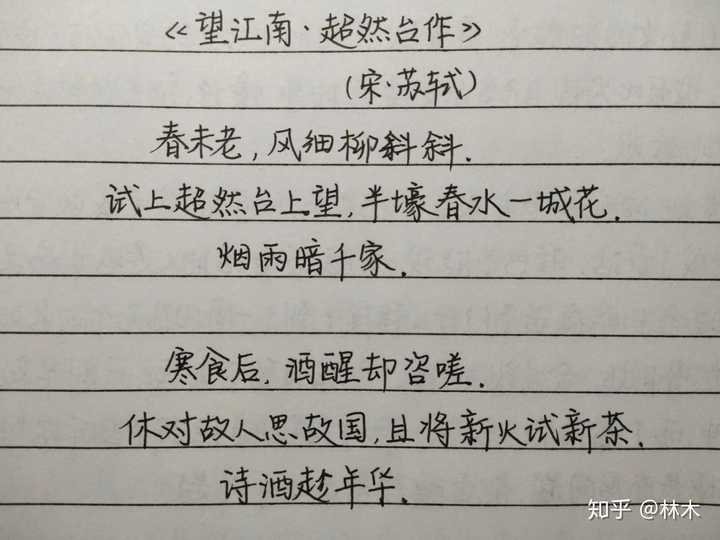 《望江南·超然台作》
(宋·苏轼)
春未老,风细柳斜斜.
试上超然台上望,半壕春水一城花.
烟雨暗千家.
寒食后,酒醒却咨嗟.
休对故人思故国,且将新火试新茶.
诗酒趁年华.
知乎 @林木